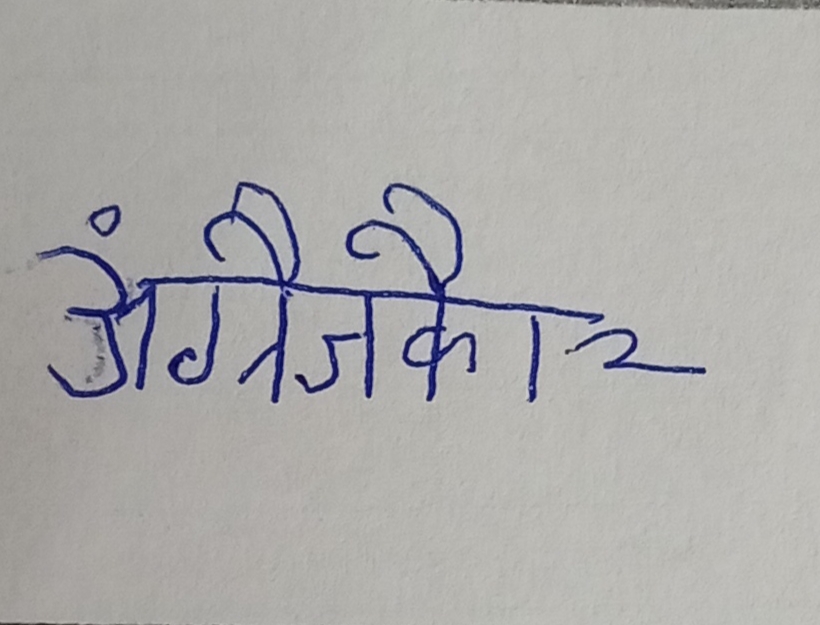 अंग्रैजकै।२